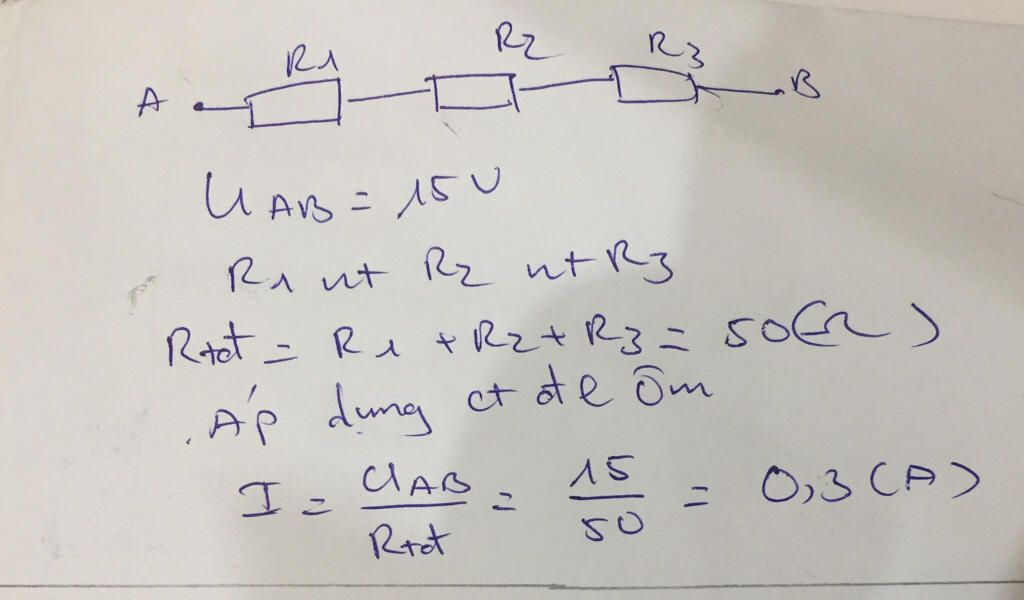 R1 R2 R3
A B
UAB = 15V
R1 nt R2 nt R3
Rtđ = R1 + R2 + R3 = 50(Ω)
Áp dụng ct đl Ôm
I = UAB/Rtđ = 15/50 = 0,3(A)